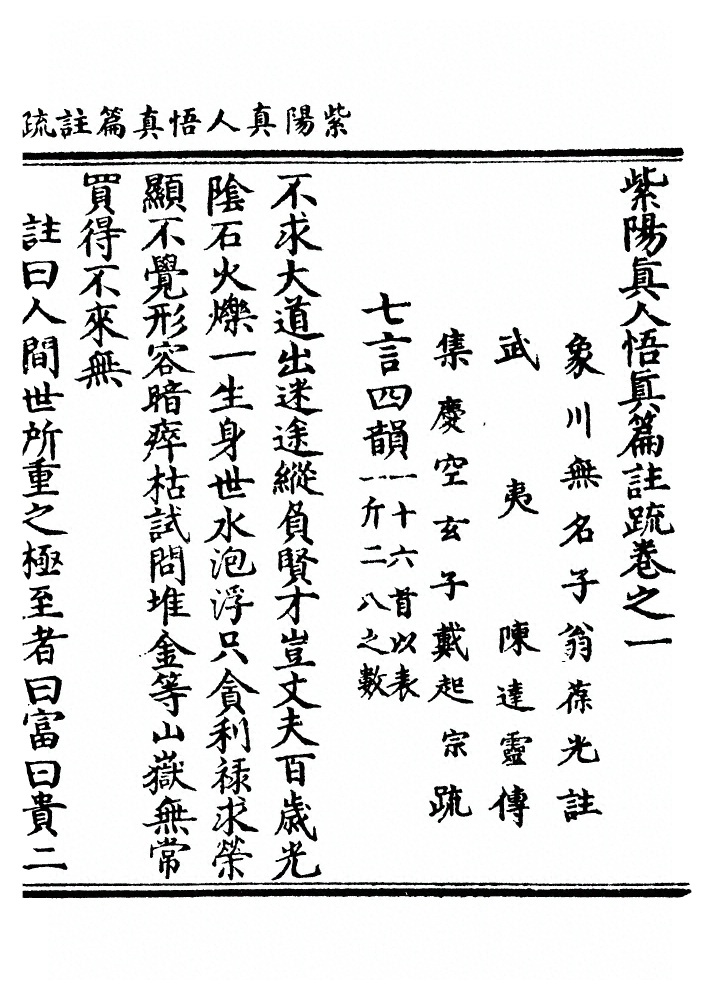 紫陽真人悟真篇註疏
紫陽眞人悟眞篇註疏卷之一
象川無名子翁葆光註
武夷陳達靈傳
集慶空玄子戴起宗疏
七言四韻一十六首以表一斤二八之數
不求大道出迷途縱負賢才豈丈夫百歲光
陰石火爍一生身世水泡浮只貪利祿求榮
顯不覺形容暗瘁枯試問堆金等山嶽無常
買得不來無
註曰人間世所重之極至者曰富曰貴二